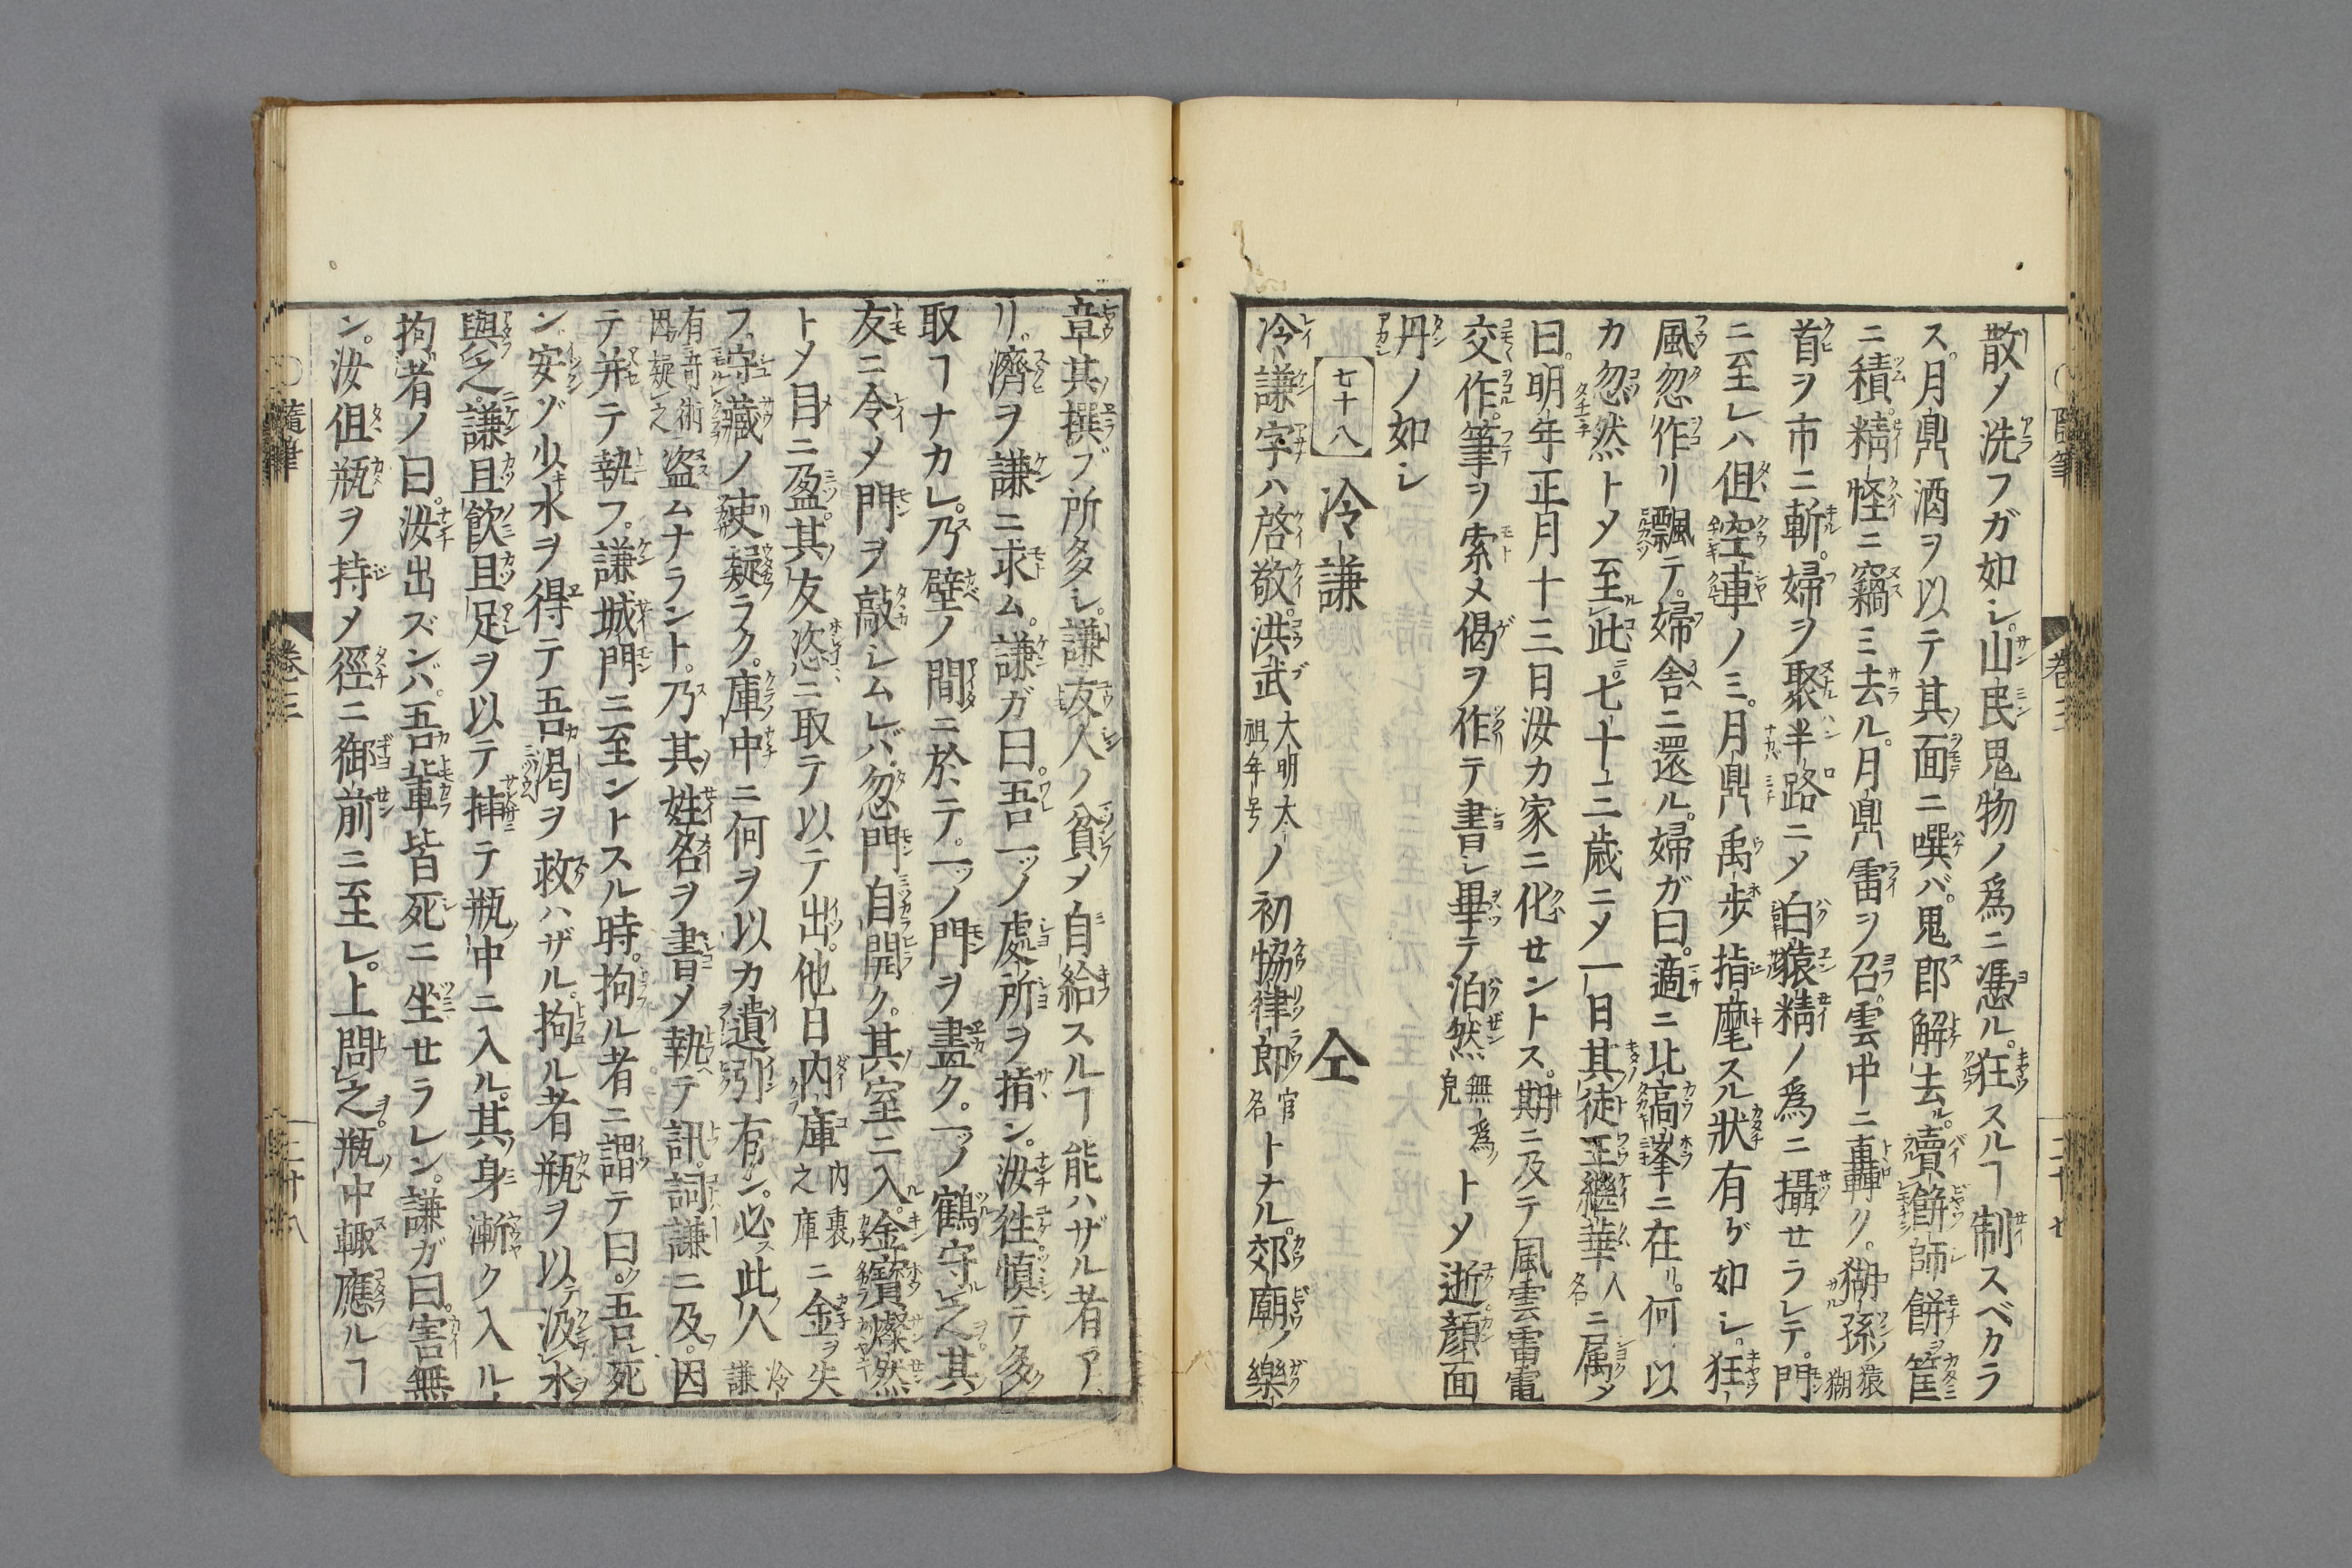 散メ洗フガ如シ。山民鬼物ノ爲ニ憑ル。狂スルヿ制スベカラ
ス。月鼎酒ヲ以テ其面ニ噀バ。鬼郎解去ル。賣餅師餅ヲ筐
ニ積。精怪ニ竊ミ去ル。月鼎雷ヲ召。雲中ニ轟轟ク。猢孫猿猢
首ヲ市ニ斬。婦ヲ聚半路ニメ白猿精ノ爲ニ攝セラレテ。門
ニ至レハ但空車ノミ。月鼎禹歩指麾スル狀有ゲ如シ。狂
風忽作リ飄テ。婦舎ニ還ル。婦ガ曰。適ニ此高峯ニ在リ。何以
カ忽然トメ至此。七十三歳ニメ一日其徒王繼華人名ニ属メ
曰。明年正月十三日汝カ家ニ化セントス。期ニ及テ風雲雷電
交作。筆ヲ索メ偈ヲ作テ書シ畢テ泊然無爲皃トメ逝。顔面
丹ノ如シ
七十八 冷謙 仝
冷謙字ハ啓敬。洪武大明太祖年号ノ初協律郎官名トナル。郊廟ノ樂
隨筆 巻三 二十七
章其撰ブ所多シ。謙友人ノ貧メ自給スルヿ能ハザル者アリ
リ。濟ヲ謙ニ求ム。謙ガ曰。吾一ツノ處所ヲ指ン。汝往慎テ多
取ヿナカレ。乃壁ノ間ニ於テ。一ツノ門ヲ畫ク。一ツノ鶴守之其
友ニ令メ門ヲ敲シムレバ。忽門自開ク。其室ニ入。金寶燦然
トメ目ニ盈。其友恣ニ取テ以テ出。他日内庫内裏之庫ニ金ヲ失
フ。守藏ノ吏疑ラク。庫中ニ何ヲ以カ遺引有ン。必此人冷謙
有奇術因疑之盗ムナラント。乃其姓名ヲ書メ執テ訊。詞謙ニ及。因
テ并テ執フ。謙城門ニ至ントスル時。拘ル者ニ謂テ曰。吾死
ン。安ゾ少水ヲ得テ吾渇ヲ救ハザル。拘ル者瓶ヲ以テ汲水
與之。謙且飲且足ヲ以テ挿テ瓶中ニ入ル。其身漸ク入ル
拘者ノ曰。汝出ズンバ。吾輩皆死ニ坐セラレン。謙ガ曰。害無
ン。汝但瓶ヲ持メ徑ニ御前ニ至レ。上問之。瓶中輙應ルヿ
隨筆 巻三 二十八